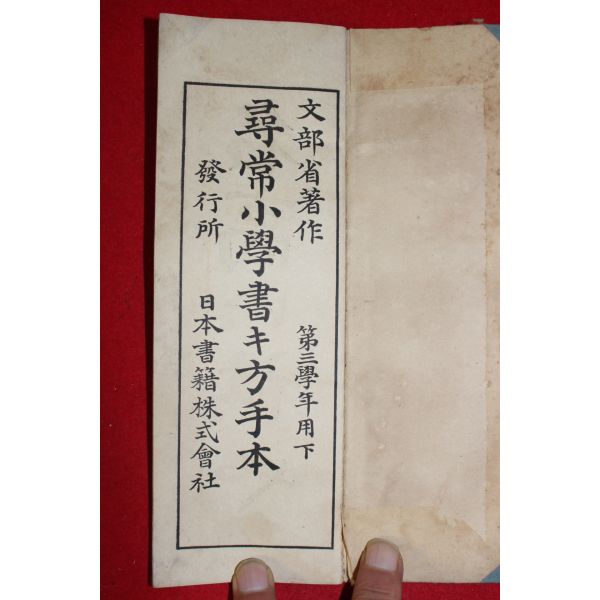 文部省著作 第三學年用下
尋常小學書キ方手本
發行所 日本書籍株式會社